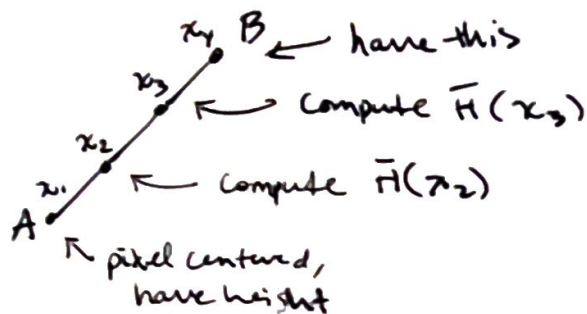 x4 B ← have this
x3 ← compute H̄(x3)
x2 ← compute H̄(x2)
x1
A
pixel centered,
have height